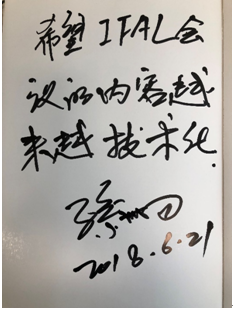 希望IFAL会
议的内容越
来越技术化.
2018.6.21